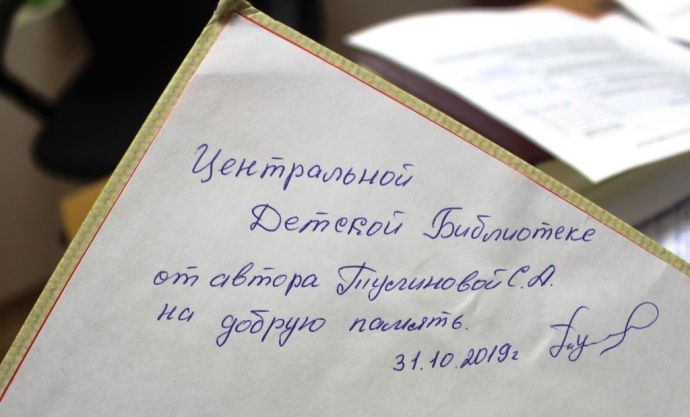 Центральной
Детской Библиотеке
от автора Тиуновой С.А.
на добрую память.
31.10.2019г